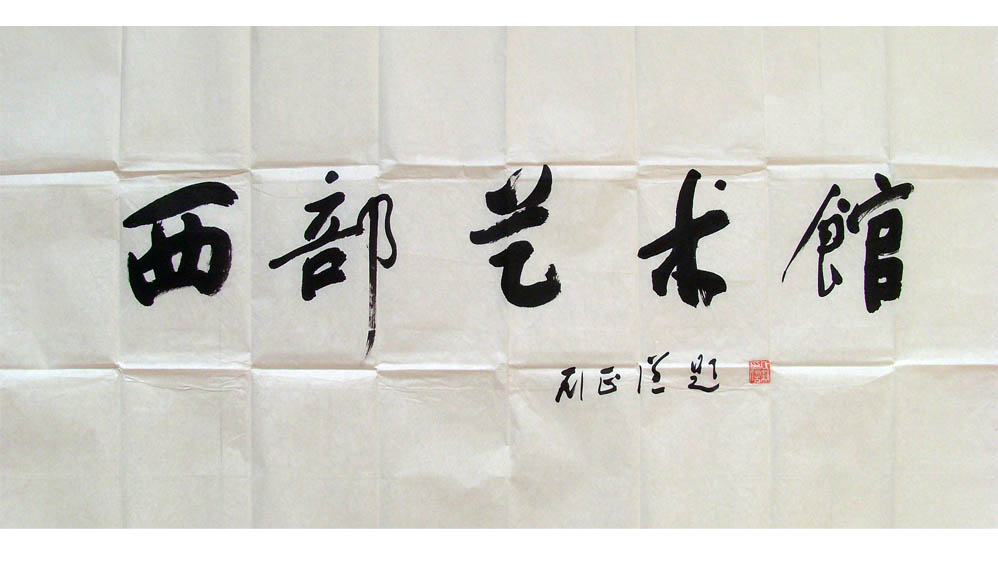 西部艺术館
刘正谦题